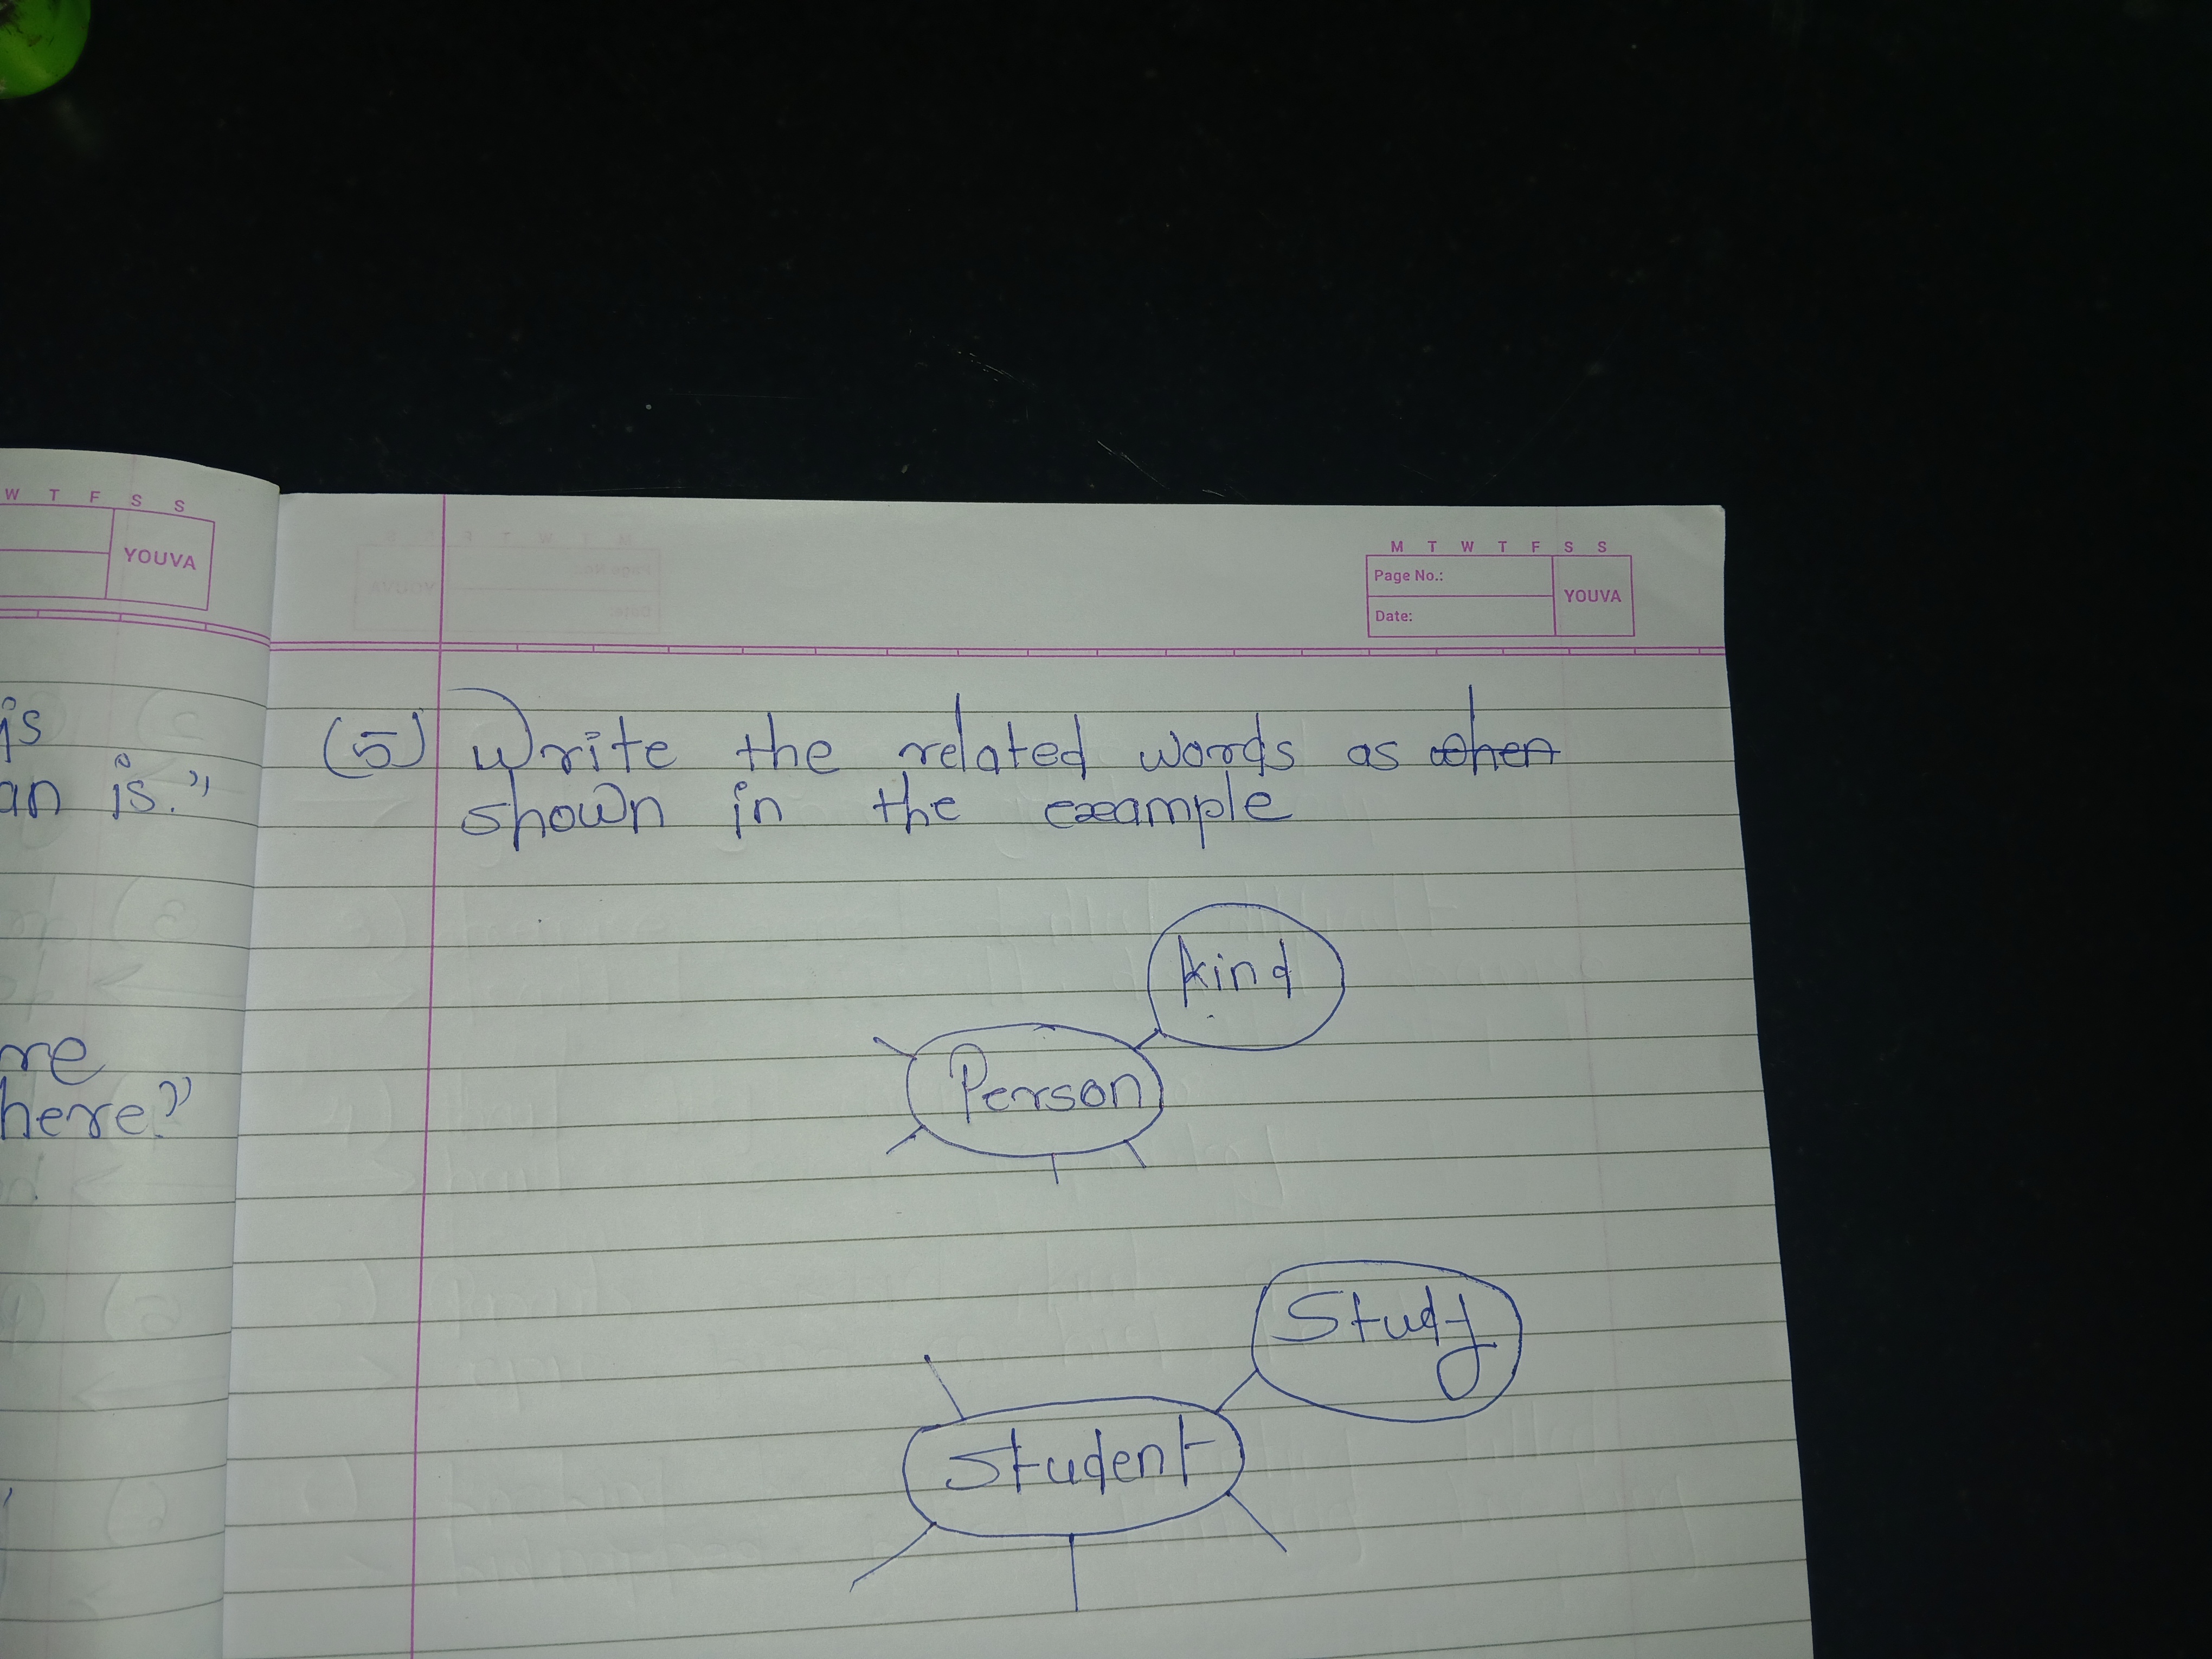 W T F S S
YOUVA
is
an is."
re
here?"
M T W T F S S
Page No.:
YOUVA
Date:
(5) Write the related words as when
shown in the example
kind
Person
Study
Student